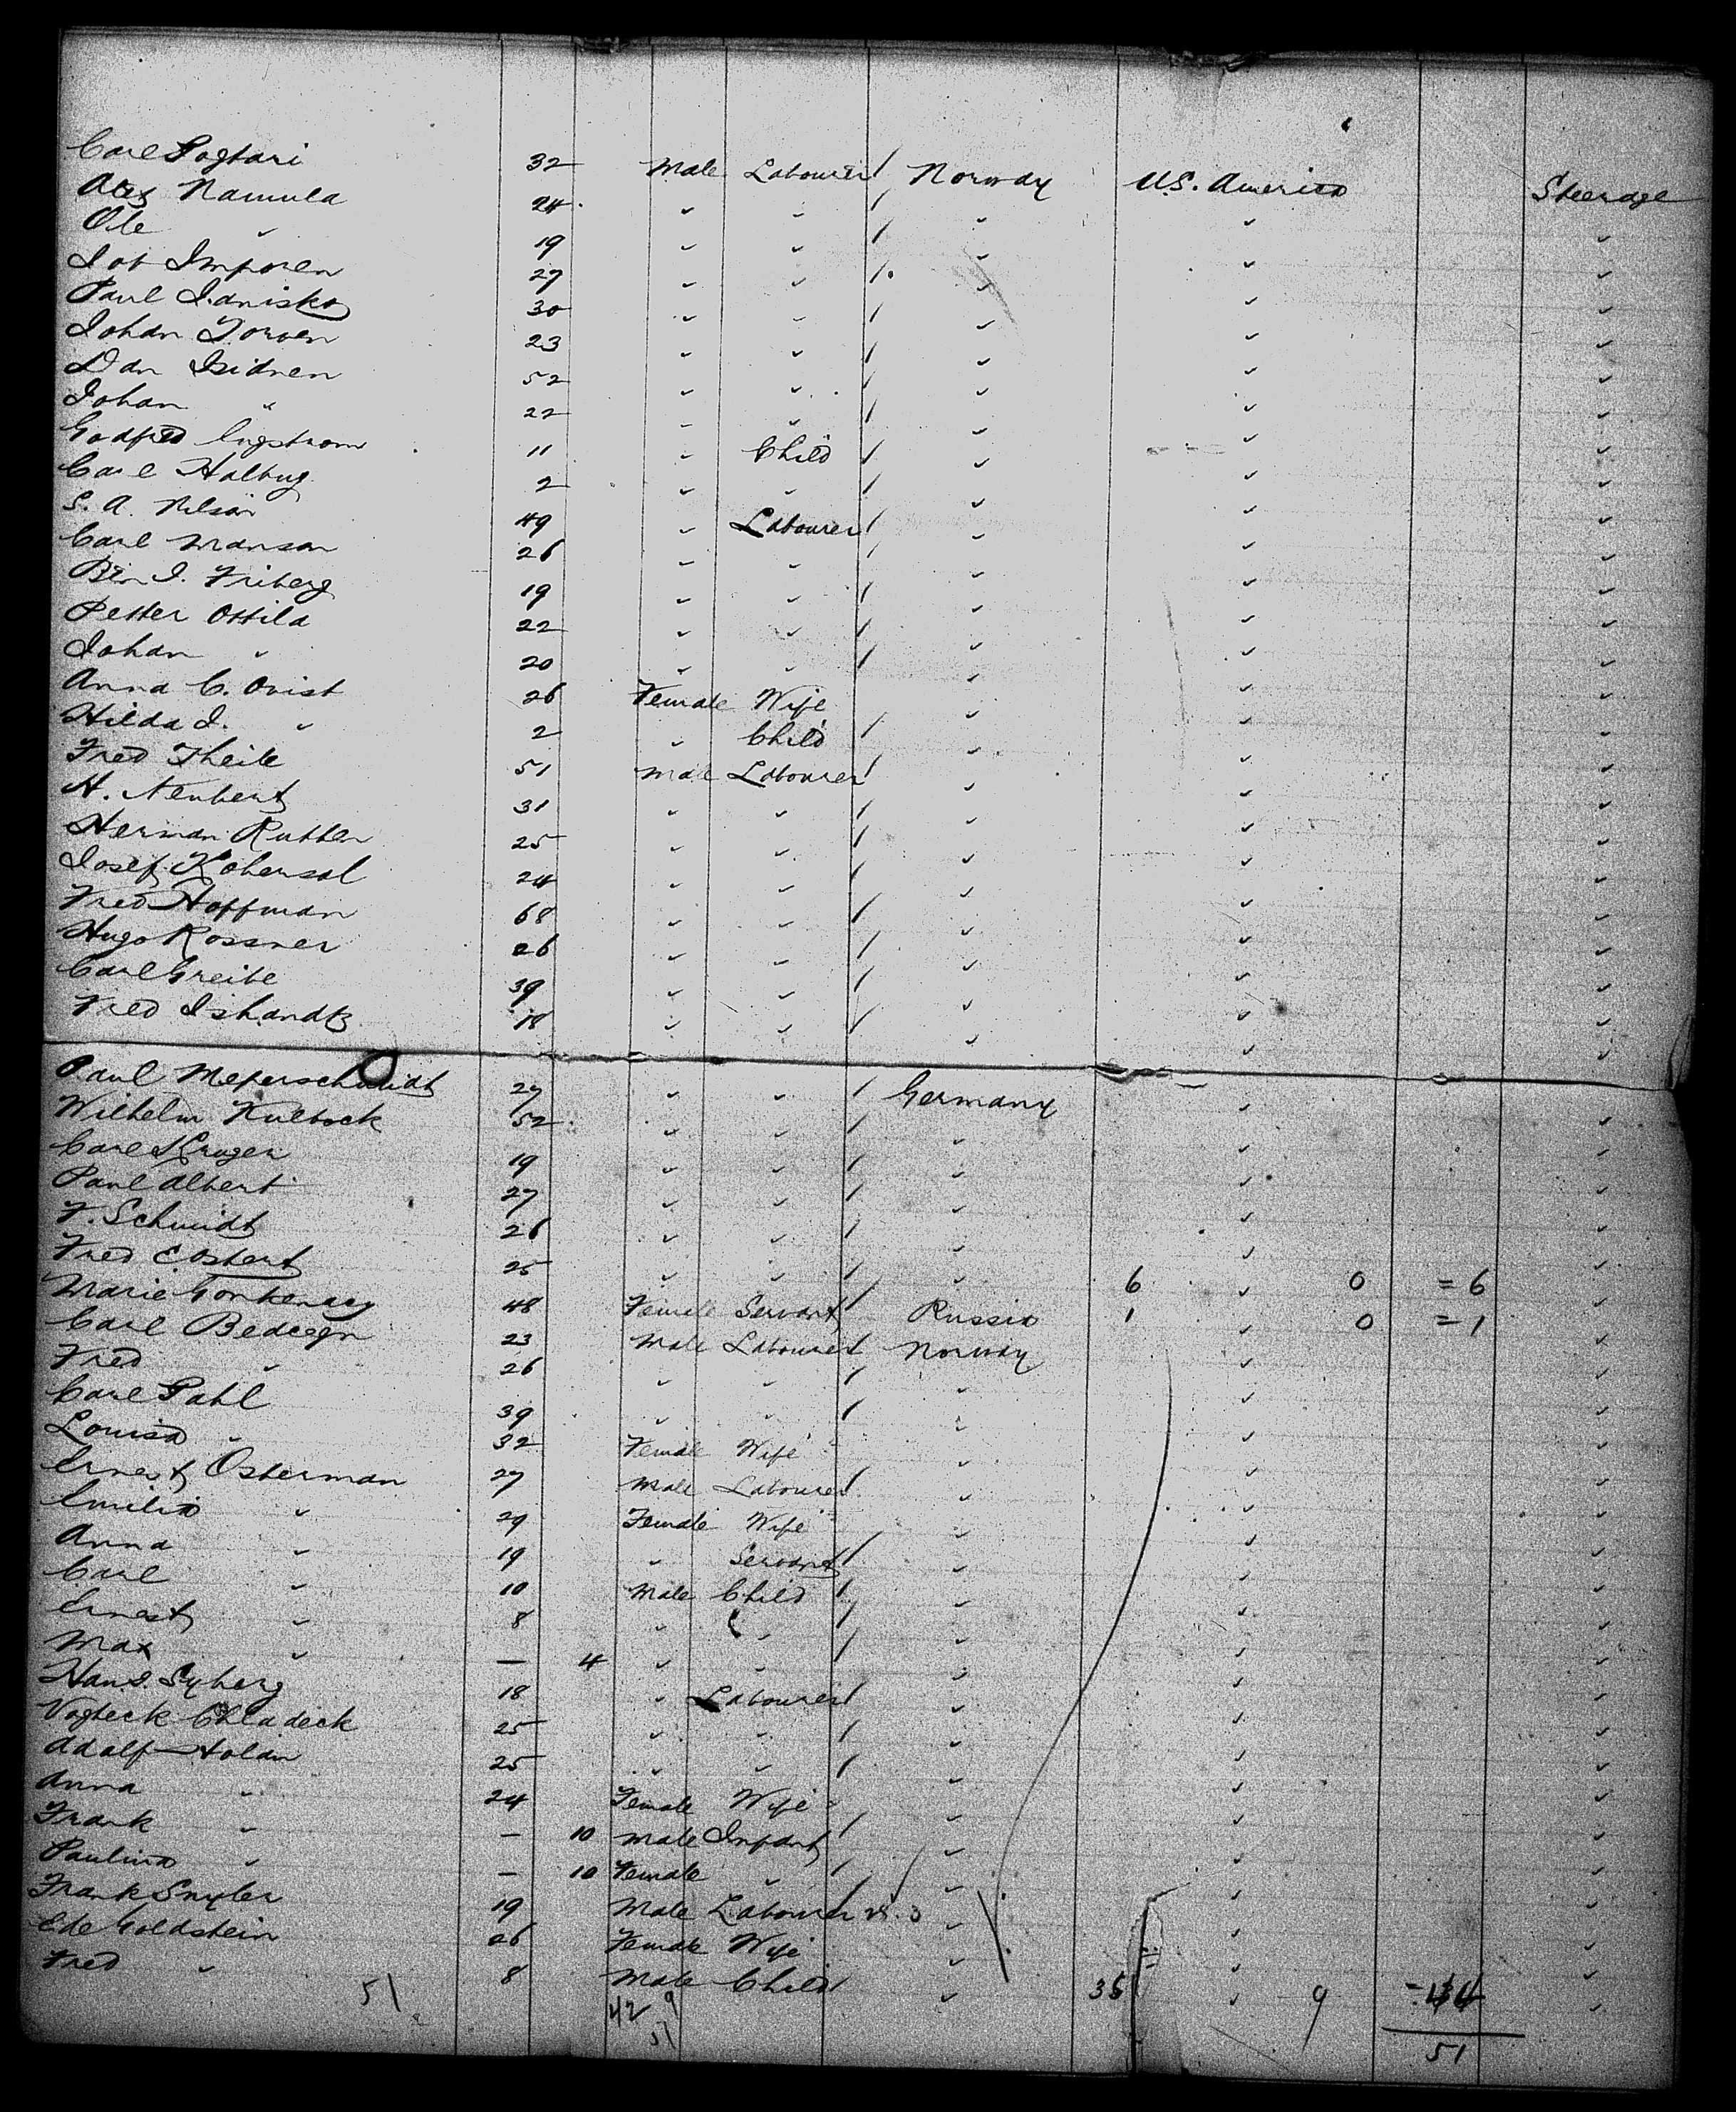 Carl 32 Male Labourer Norway U.S. America Steerage
Alex Namula 24 " " " " "
Ole " 19 " " " " "
27 " " " " "
Paul 30 " " " " "
Johan 23 " " " " "
Dan Isidnen 52 " " " " "
Johan " 22 " " " " "
Godfred Engstrom 11 " Child " " "
Carl Halbug 2 " " " " "
S. A. Nelson 49 " Labourer " " "
Carl Manson 26 " " " " "
Ben J. Friberg 19 " " " " "
Petter Ottila 22 " " " " "
Johan " 20 " " " " "
Anna C. Qvist 26 Female Wife " " "
Hilda J. " 2 " Child " " "
Fred Theile 51 Male Labourer " " "
H. Neubert 31 " " " " "
Herman Rutten 25 " " " " "
Josef Kohensal 24 " " " " "
Fred Hoffman 68 " " " " "
Hugo Rossner 26 " " " " "
Carl Greibe 39 " " " " "
Fred 18 " " " " "
Paul Meferschmidt 27 " " Germany " "
Wilhelm Kulbock 52 " " " " "
Carl Kruger 19 " " " " "
Paul Albert 27 " " " " "
F. Schmidt 26 " " " " "
Fred 25 " " " 6 " 0 = 6 "
Marie 48 Female Servant Russia 1 " 0 = 1 "
Carl 23 Male Labourer Norway " "
Fred " 26 " " " " "
Carl Pahl 39 " " " " "
Louisa " 32 Female Wife " " "
Ernest Osterman 27 Male Labourer " " "
Emilia " 29 Female Wife " " "
Anna " 19 " Servant " " "
Carl " 10 Male Child " " "
Ernest " 8 " " " " "
Max " — 4 " " " " "
Hans Syberg 18 " Labourer " " "
Vogteck Chladeck 25 " " " " "
Adolf Holan 25 " " " " "
Anna " 24 Female Wife " " "
Frank " — 10 Male Infant " " "
Paulina " — 10 Female " " " "
Frank Snyder 19 Male Labourer " " "
Ede Goldstein 26 Female Wife " " "
Fred " 8 Male Child " 35 " 9 = 44 "
51 42 9 51
51